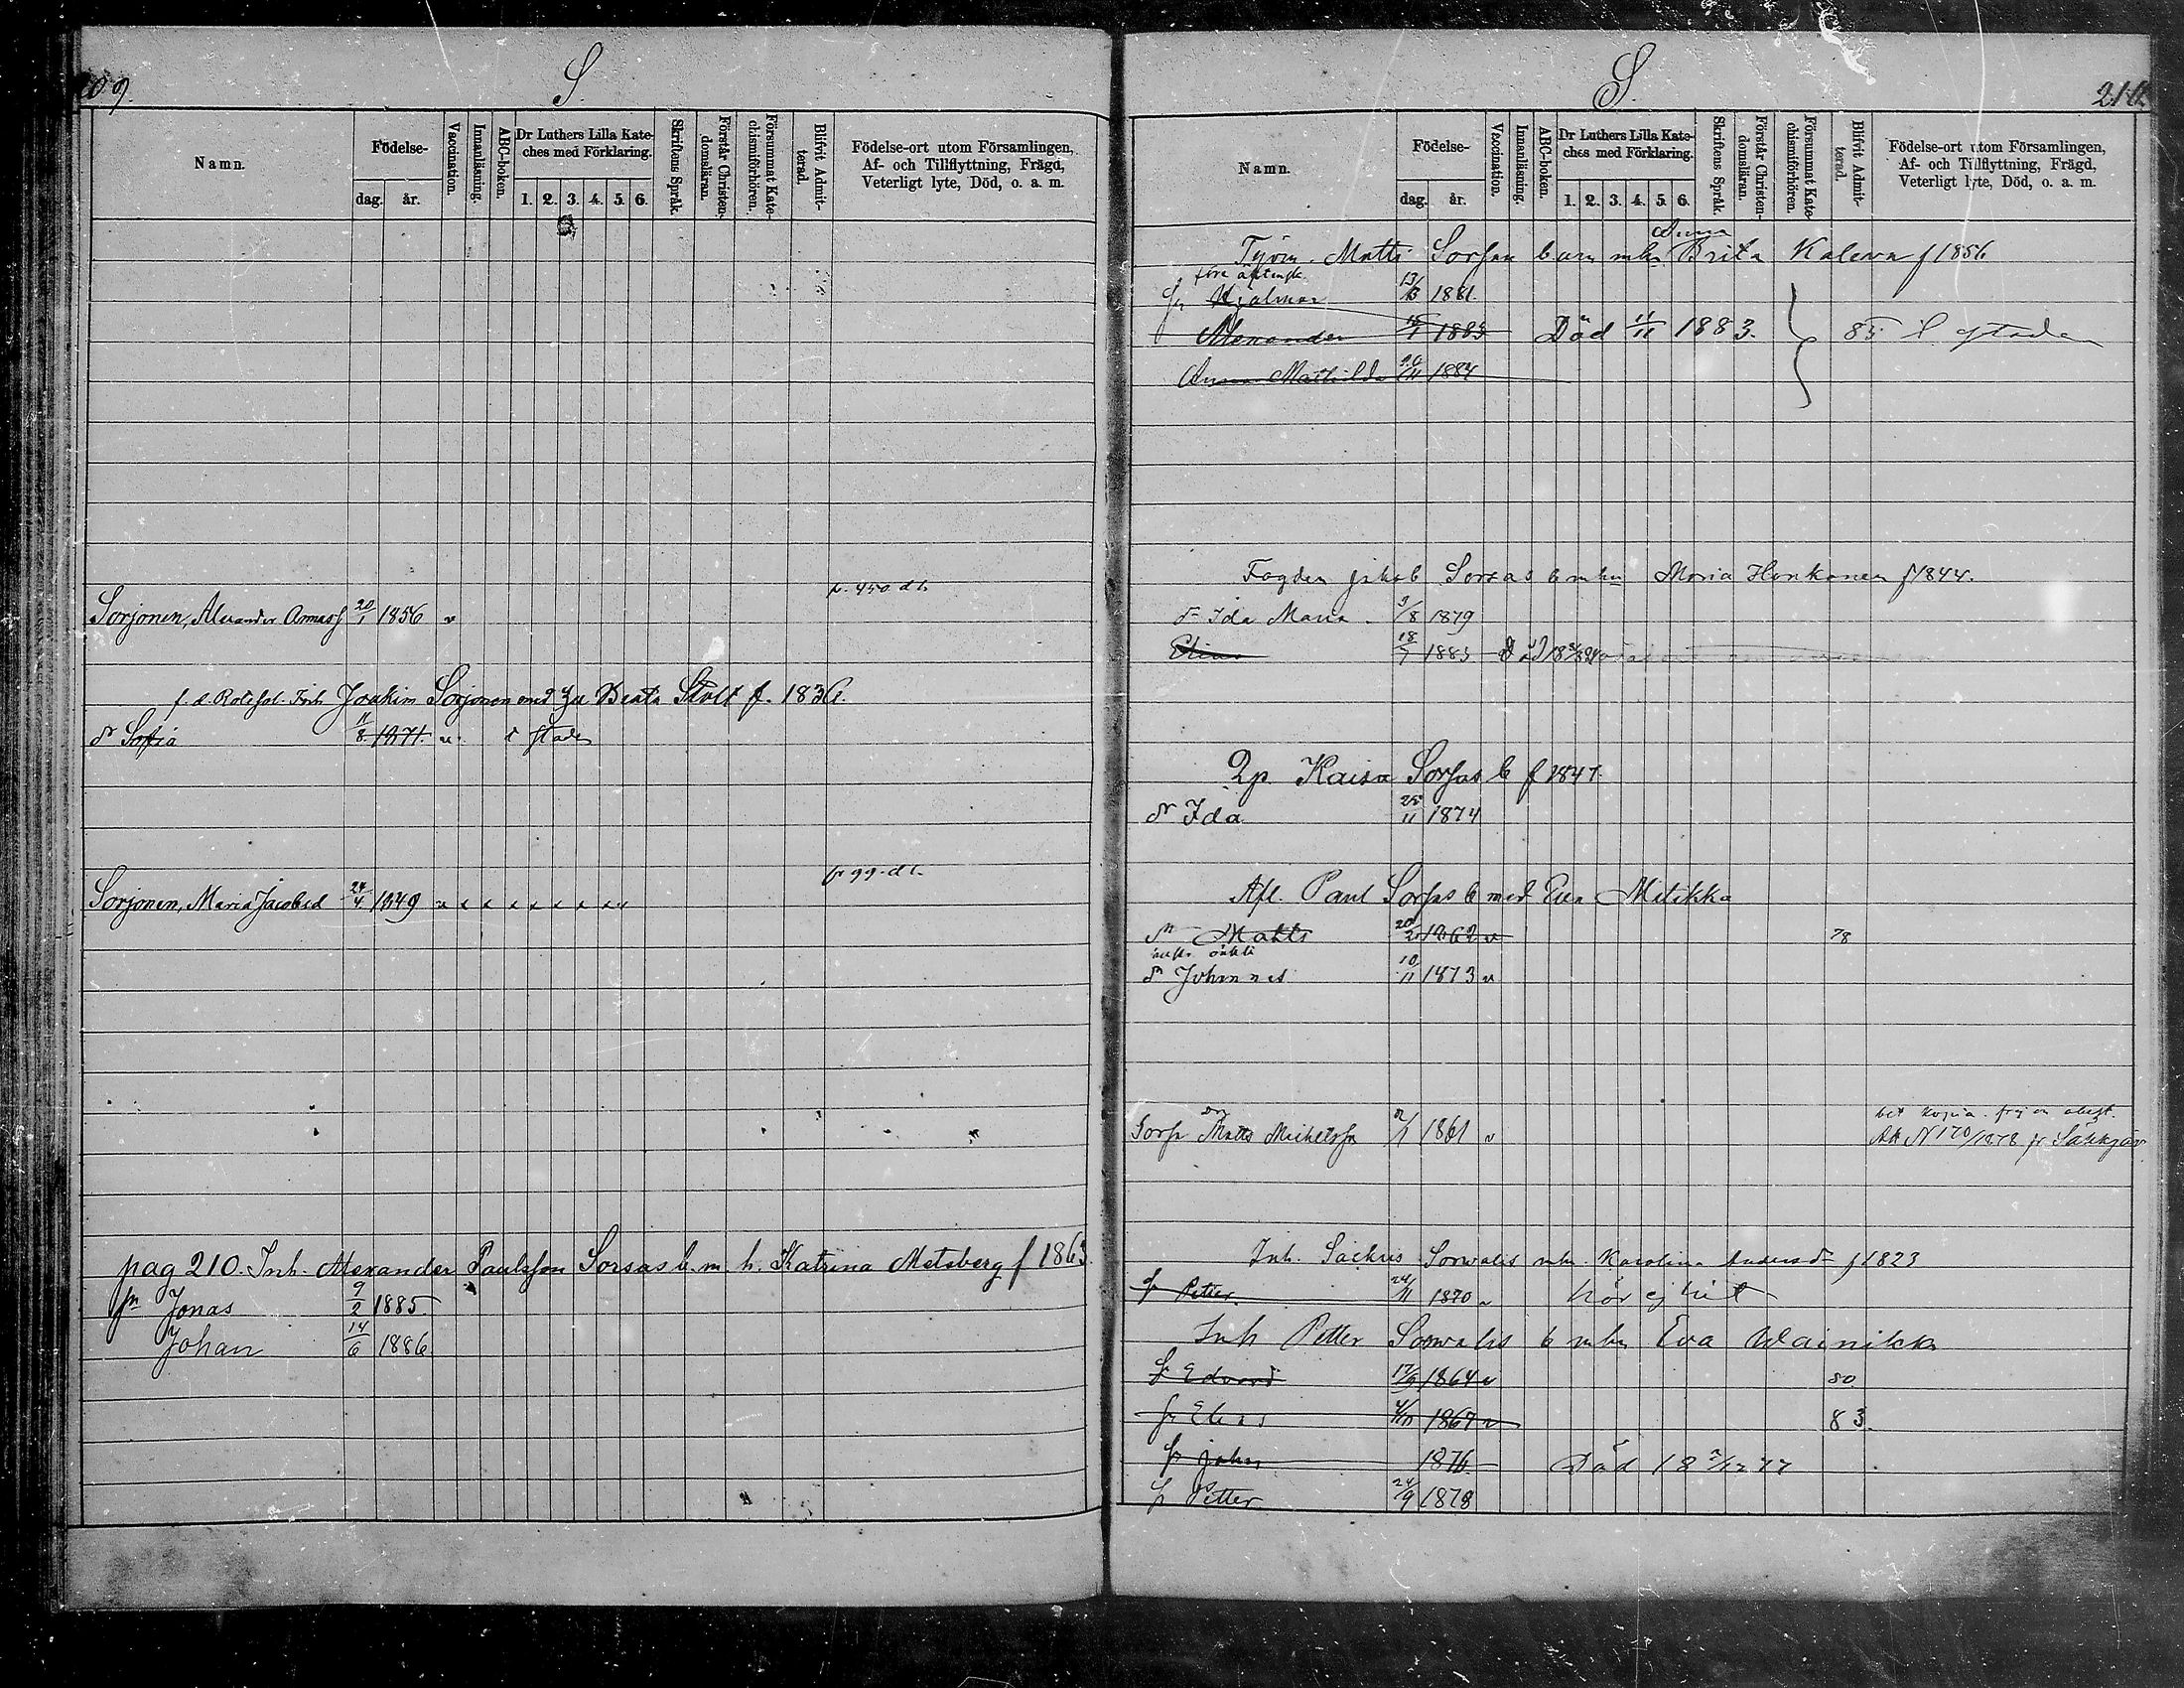 209.
S.
Namn.
Födelse-
dag. år.
Vaccination.
Innanläsning.
ABC-boken.
Dr Luthers Lilla Kate-
ches med Förklaring.
1. 2. 3. 4. 5. 6.
Skriftens Språk.
Förstår Christen-
domsläran.
Försummat Kate-
chismiförhören.
Blifvit Admit-
terad.
Födelse-ort utom Församlingen,
Af- och Tillflyttning, Frägd,
Veterligt lyte, Död, o. a. m.
p. 950 d b.
Sorjonen, Alexander 20/1 1856 v
Joakim Sorjonen med Beata Stolt f. 1836.
dr Sofia 11/8 1871. v.
p 99 d b.
Sorjonen, Maria Jacobsd 24/4 1849 x x x x x x x x x
pag 210. Inh. Alexander Paulsson Sorsas b. m. h. Katrina Metsberg f 1863.
sn Jonas 9/2 1885
Johan 14/6 1886
S.
210
Namn.
Födelse-
dag. år.
Vaccination.
Innanläsning.
ABC-boken.
Dr Luthers Lilla Kate-
ches med Förklaring.
1. 2. 3. 4. 5. 6.
Skriftens Språk.
Förstår Christen-
domsläran.
Försummat Kate-
chismiförhören.
Blifvit Admit-
terad.
Födelse-ort utom Församlingen,
Af- och Tillflyttning, Frägd,
Veterligt lyte, Död, o. a. m.
Anna
Matts Sorsas barn mhu Brita Kaleva f 1856
före äktensk.
Hjalmar 1881.
Alexander 1883 Död 11/11 1883. 85
Anna Mathilda 1884
Fogden Jakob Sorsas b mhu Maria Honkanen f 1844.
dr Ida Maria 3/8 1879
Elias 18/7 1883
Qp. Kaisa Sorsas b f 1847.
dr Ida 25/11 1874
Afl. Paul Sorsas b med Eva Mitikka
sn Matts 20/2 1862 v 78
sn Johannes 10/11 1873 v
Matts Michelss 1861 v
N 170/1878 fr Säkkjärvi
Inh. Sachris Sorvalis mhu. Karolina Andersdr f 1823
sn Petter 24/11 1870 v hör ej hit
Inh Petter Sorvalis b mhu Eva Wainikka
sn Edvard 17/9 1864 v 80
sn Elias 1867 v 83.
sn John 1876 Död 18 2/12 77
sn Petter 24/9 1878